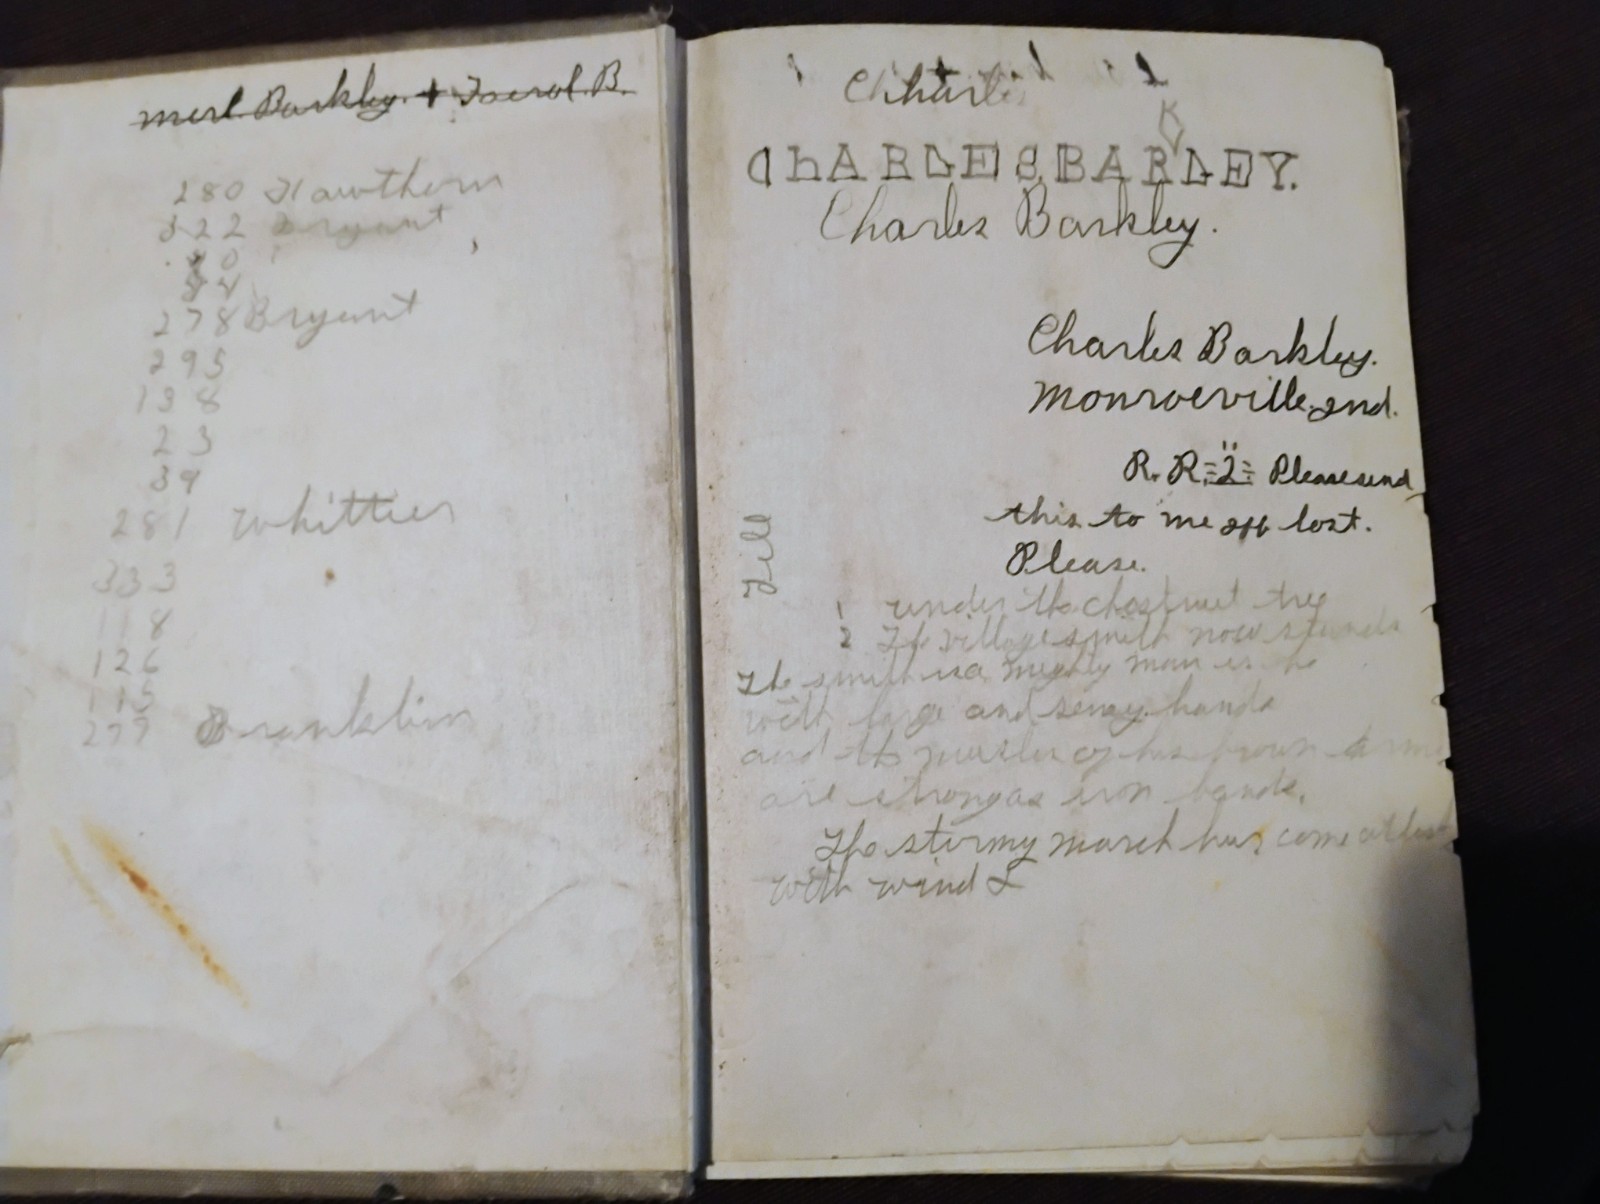 merl. Barkley. + Foerol. B.
280 Hawthorn
322 Bryant
278 Bryant
295
138
23
39
281 Whittier
333
118
126
115
277 Franklin
Charles
K
ChARLES BARLEY.
Charles Barkley.
Charles Barkley.
Monroeville. Ind.
R. R. 2 Please send
this to me iff lost.
Please.
1 under the chestnut tree
2 The village smith now stands
The smith is a mighty man is he
with large and senay hands
and the musles of his brown arms
are strong as iron bands.
The stormy march has come at last
with wind &